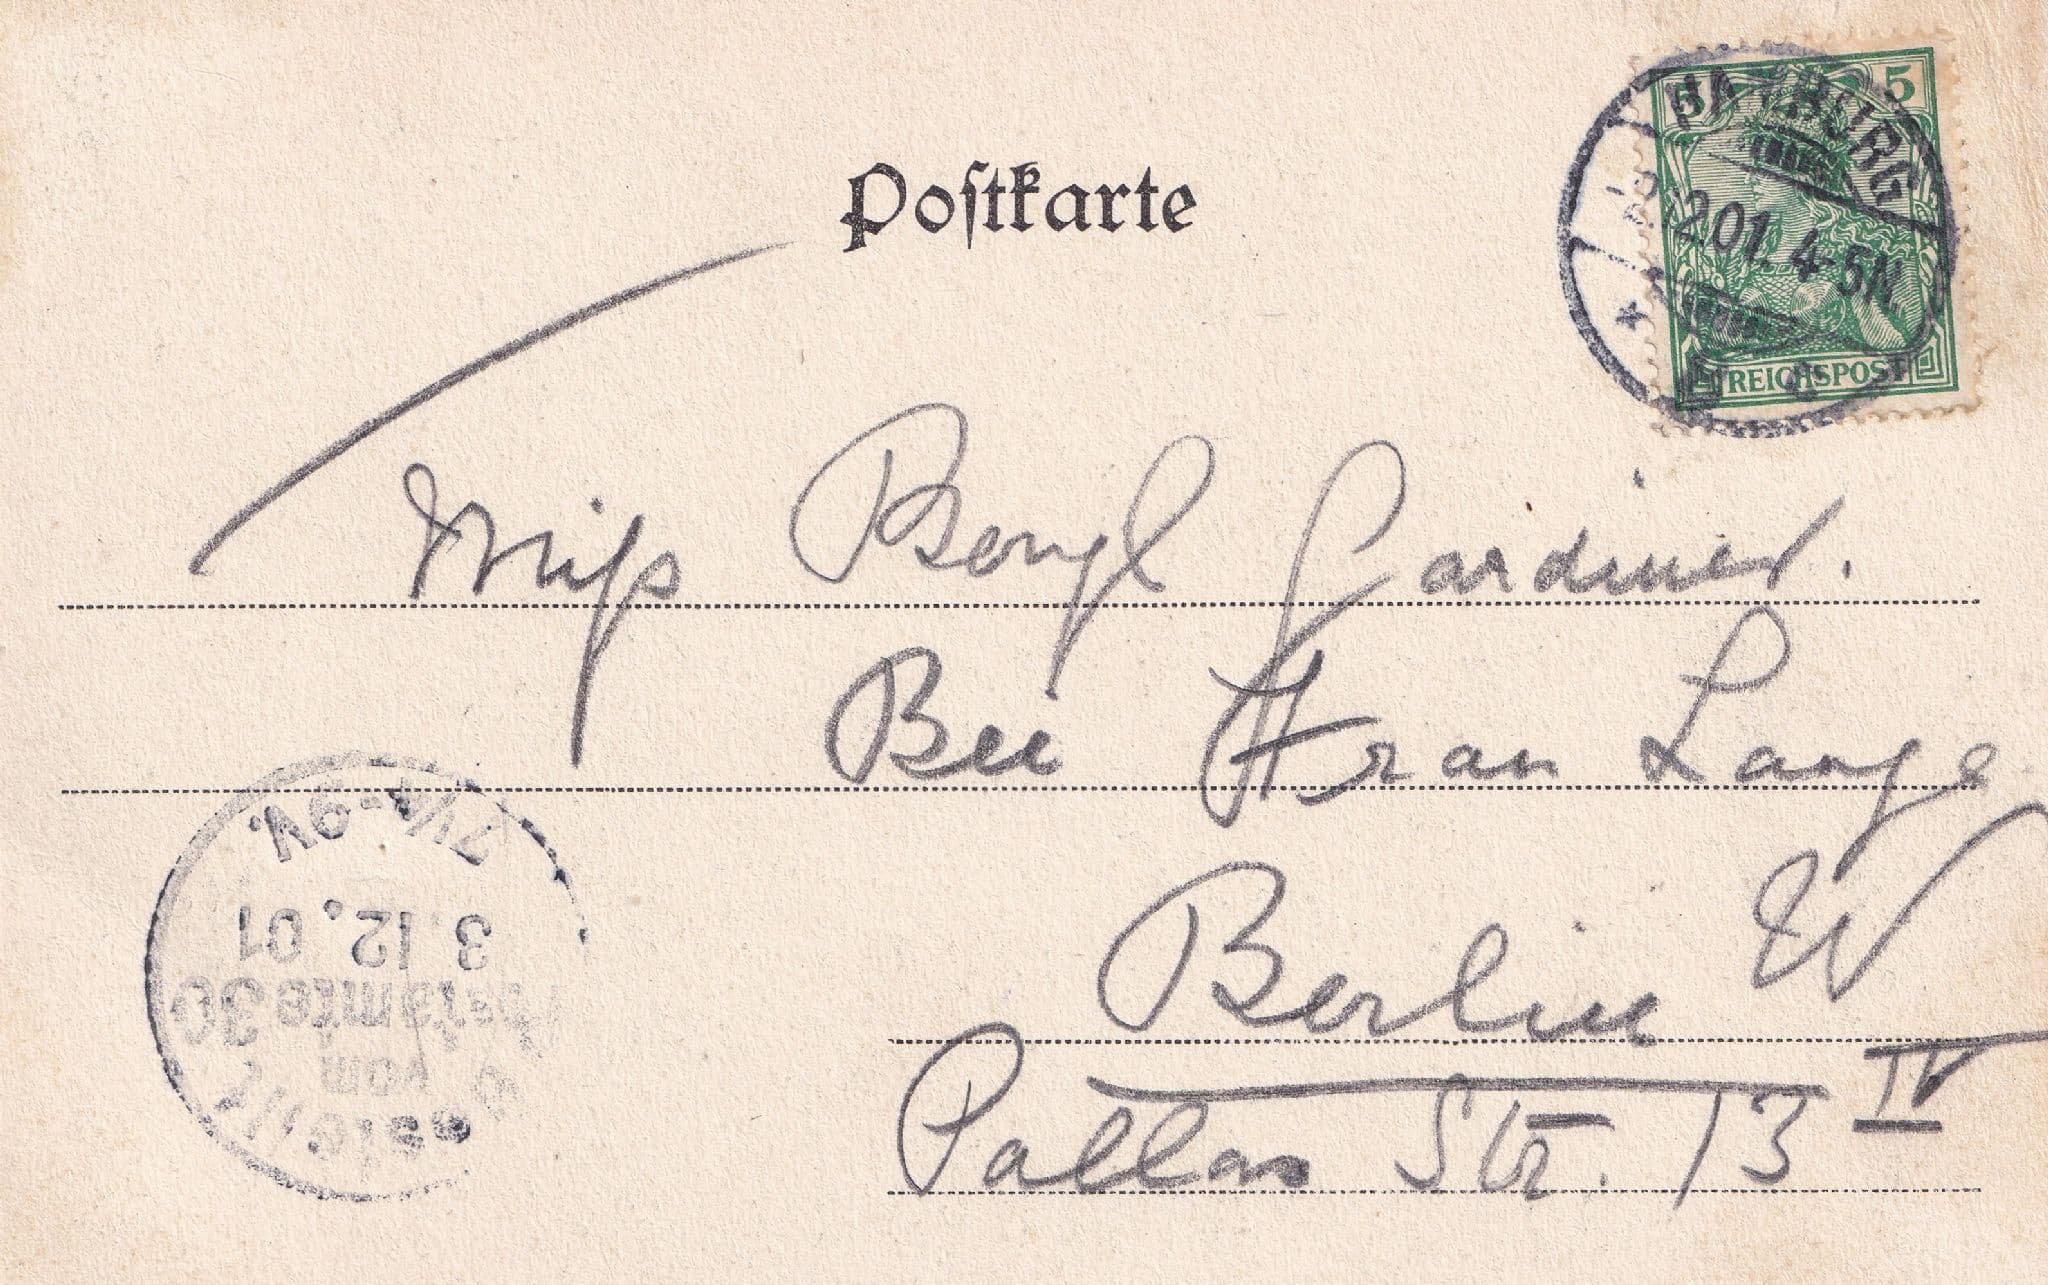 Postkarte
5 5
HAMBURG
2.12.01. 4-5N.
REICHSPOST
Miss Beryl Gardiner.
Bei Frau Lange
Berlin W
Pallas Str. 13 IV
7½-9V.
3.12.01
Postamte 30
vom
Bestellt